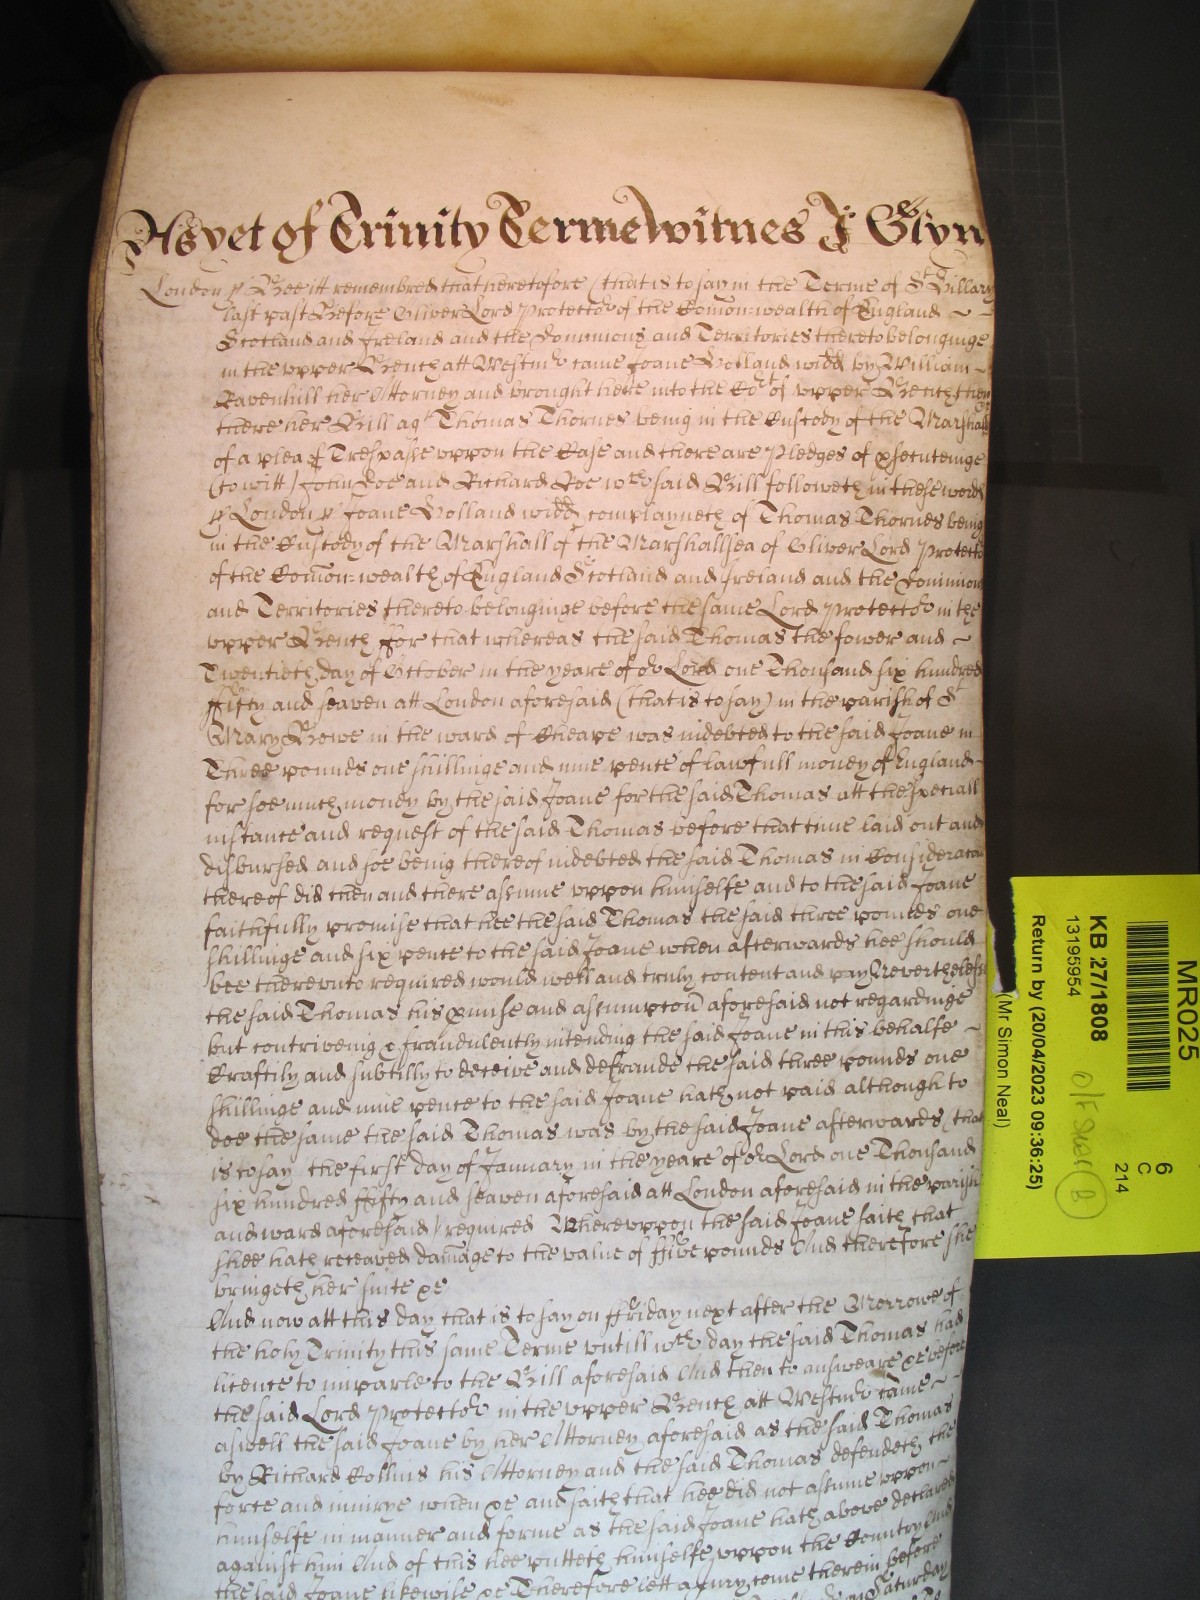 As yet of Trinity Terme witnes J: Glyn
London ss Bee itt remembred that heretofore (that is to say in the Terme of St Hillary
last past Before Oliver Lord Protector of the Com̃on: wealth of England ~ ~
Scotland and Ireland and the Dominions and Territories thereto belonginge
in the upper Bench att Westmr came Joane Holland widd by William ~
Ravenhill her Attorney and brought here into the Cort of upper Bench then
there her Bill agt Thomas Thornes being in the Custody of the Marshall
of a plea of Trespasse uppon the Case and there are Pledges of psecuteinge
(to witt) John Doe and Richard Roe wch said Bill followeth in these words
ss London ss Joane Holland widd complayneth of Thomas Thornes being
in the Custody of the Marshall of the Marshallsea of Oliver Lord Protector
of the Com̃on: wealth of England Scotland and Ireland and the Dominions
and Territories thereto belonginge before the same Lord Protector in the
upper Bench ffor that whereas the said Thomas the fower and ~
Twentieth day of October in the yeare of or Lord one Thousand six hundred
ffifty and seaven att London aforesaid (that is to say) in the parish of St
Mary Bowe in the ward of Cheape was indebted to the said Joane in
Three pounds one shillinge and nine pence of lawfull money of England
for soe much money by the said Joane for the said Thomas att the speciall
instance and request of the said Thomas before that time laid out and
disbursed and soe being thereof indebted the said Thomas in Consideracon
thereof did then and there assume uppon himselfe and to the said Joane
faithfully promise that hee the said Thomas the said three pounds one
shillinge and six pence to the said Joane when afterwards hee should
bee thereunto required would well and truly content and pay Neverthelesse
the said Thomas his pmise and assumpcon aforesaid not regardinge
but contriveing & fraudulently intending the said Joane in this behalfe ~
Craftily and subtilly to deceive and defraude the said three pounds one
shillinge and nine pence to the said Joane hath not paid although to
doe the same the said Thomas was by the said Joane afterwards (that
is to say the first day of January in the yeare of or Lord one Thousand
six hundred ffifty and seaven aforesaid att London aforesaid in the parish
and ward aforesaid) required Whereuppon the said Joane saith that
shee hath receaved damage to the value of ffive pounds And therefore she
bringeth her suite &c
And now att this day that is to say on ffriday next after the Morrowe of
the holy Trinity this same Terme untill wch day the said Thomas had
licence to imparle to the Bill aforesaid And then to answeare &c before
the said Lord Protector in the upper Bench att Westmr came ~ ~
aswell the said Joane by her Attorney aforesaid as the said Thomas
by Richard Collins his Attorney and the said Thomas defendeth the
force and iniurye when &c and saith that hee did not assume uppon ~
himselfe in manner and forme as the said Joane hath above declared
against him And of this hee putteth himselfe uppon the Country And
the said Joane likewise &c Therefore lett a Jury come therein before
Saturday
MR025
KB 27/1808
13195954
Return by (20/04/2023 09:36:25)
(Mr Simon Neal)
6
C
214